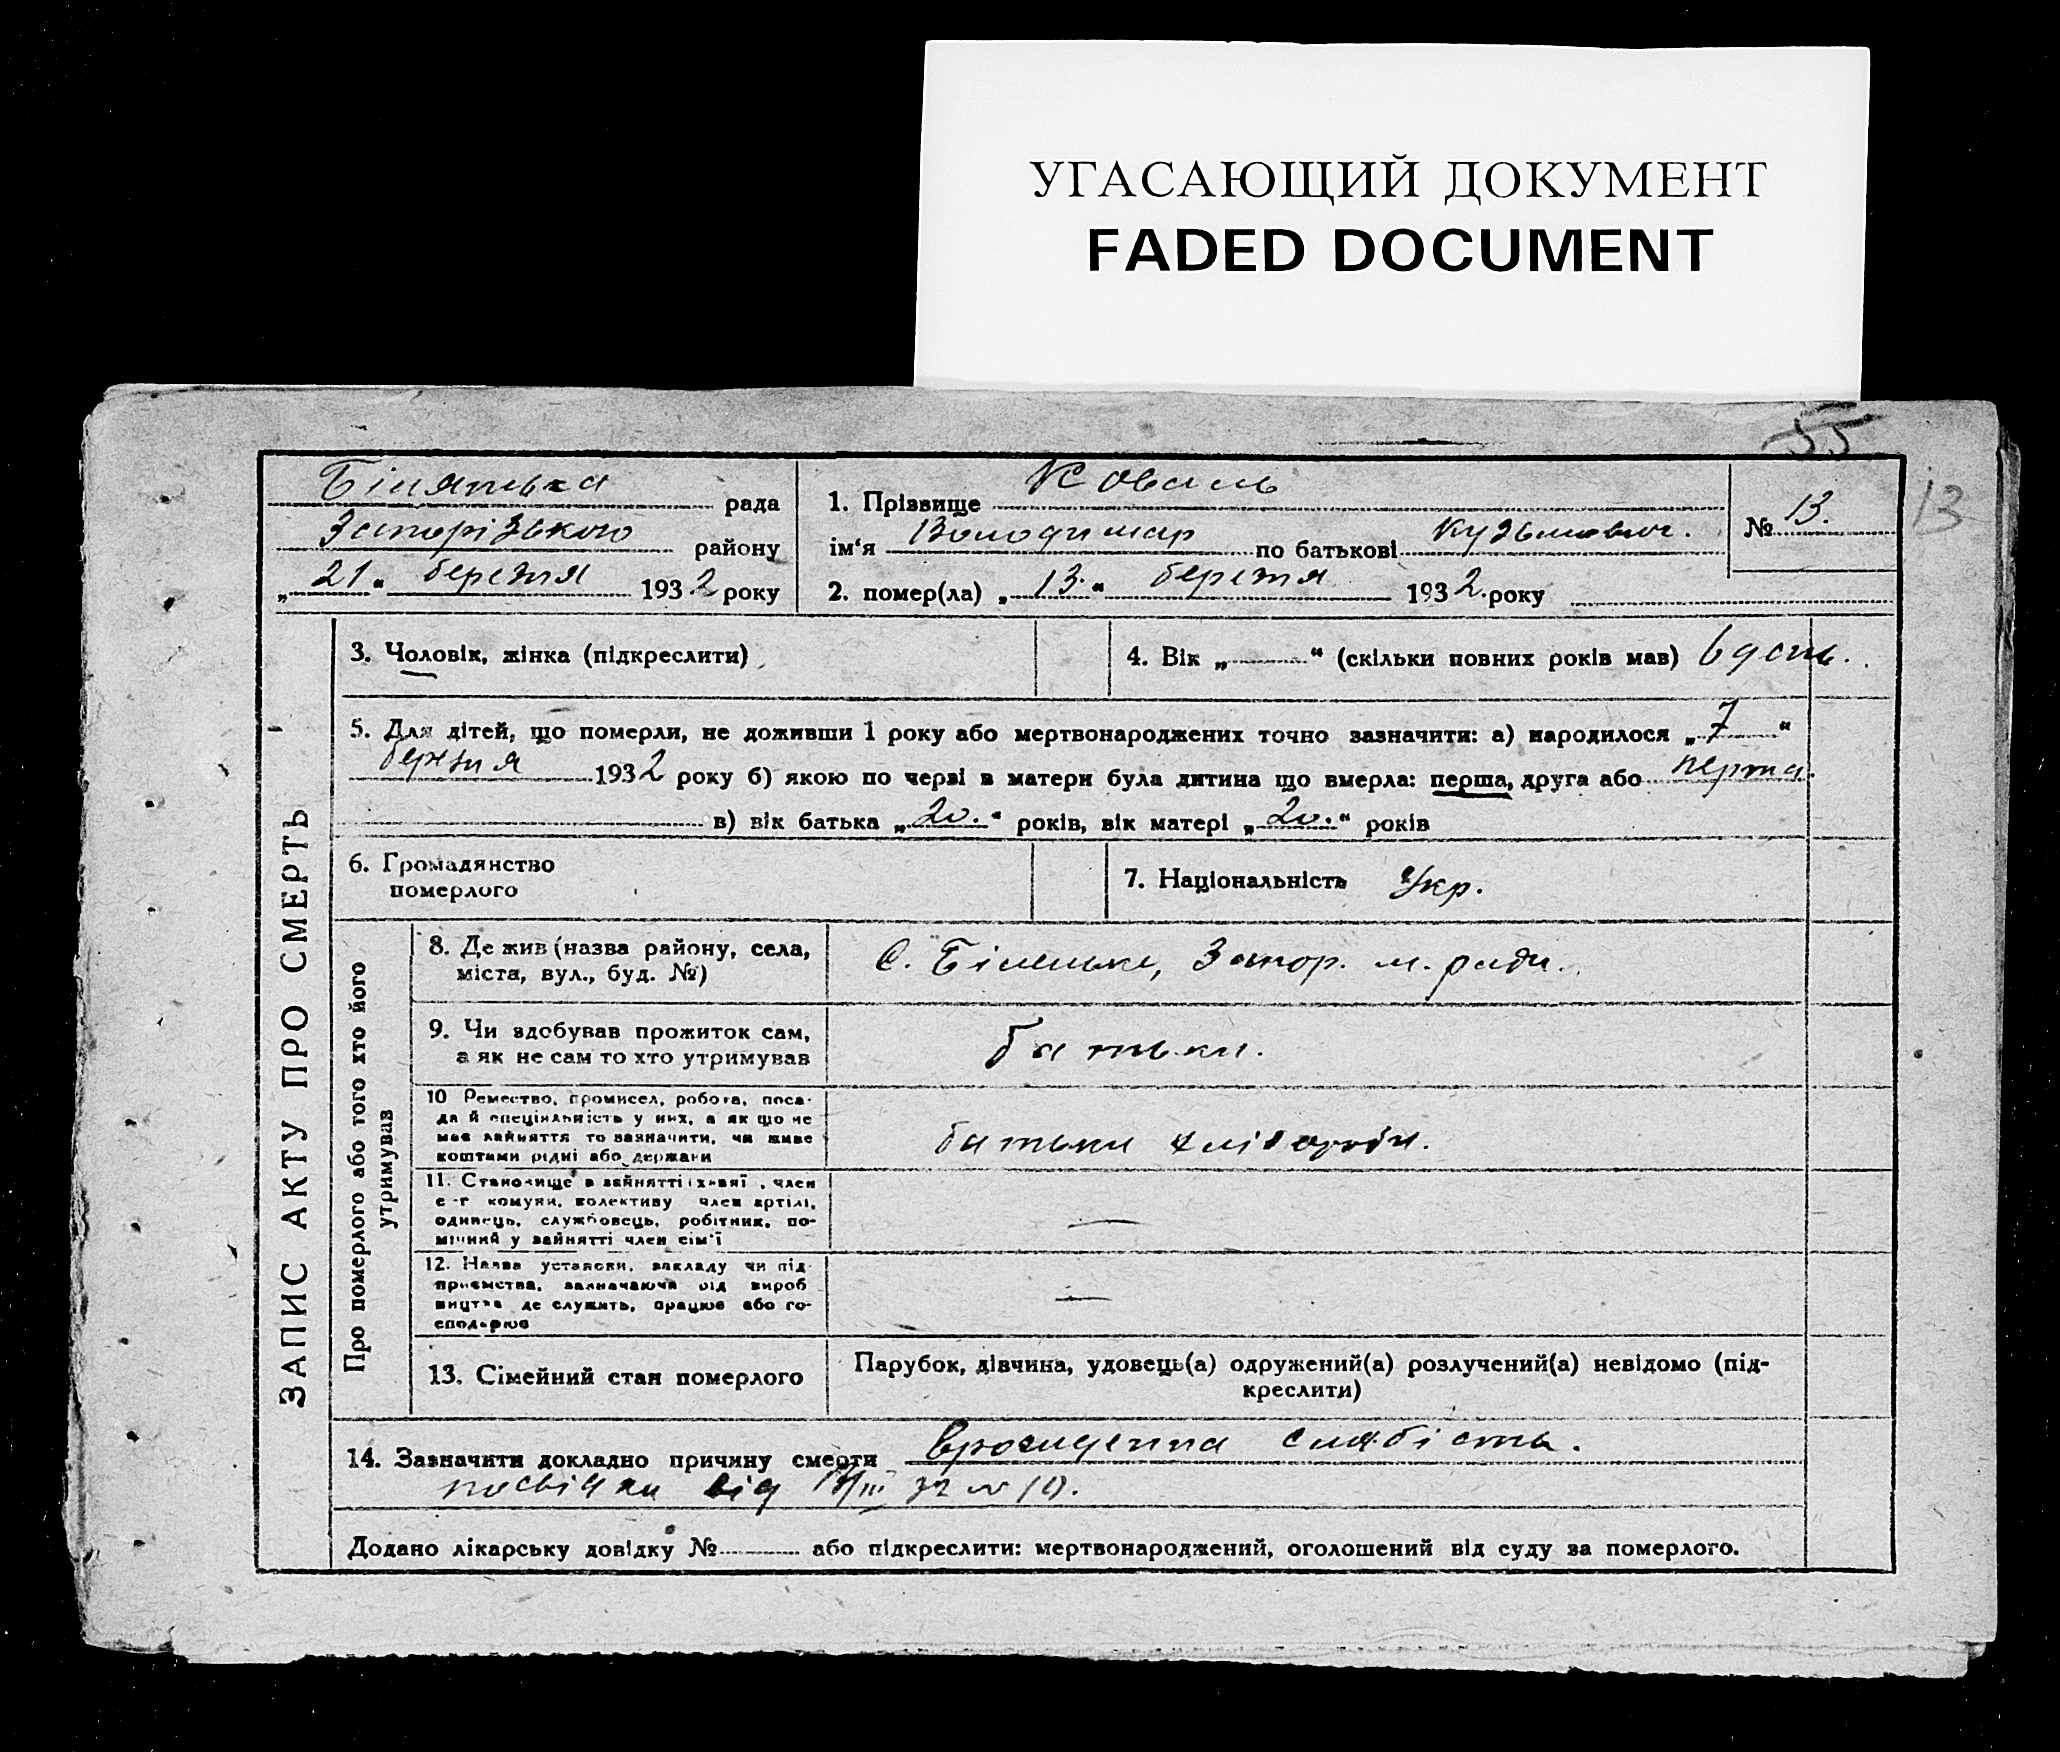 УГАСАЮЩИЙ ДОКУМЕНТ
FADED DOCUMENT
55
13
ЗАПИС АКТУ ПРО СМЕРТЬ
рада
Запорізького району
„21“ березня 1932 року
1. Прізвище Коваль
ім‘я Володимир по батькові Кузьмович.
2. помер(ла) „13.“ березня 1932. року
№ 13.
3. Чоловік, жінка (підкреслити)
4. Вік „ “ (скільки повних років мав) 6 день.
5. Для дітей, що померли, не доживши 1 року або мертвонароджених точно зазначити: а) народилося „7“
березня 1932 року б) якою по черзі в матери була дитина що вмерла: перша, друга або перша.
в) вік батька „20.“ років, вік матері „20.“ років
6. Громадянство
померлого
7. Національність Укр.
Про померлого або того хто його
утримував
8. Де жив (назва району, села,
міста, вул., буд. №)
С. Біленьке, Запор. м. ради.
9. Чи здобував прожиток сам,
а як не сам то хто утримував
батьки.
10 Ремество, промисел, робота, поса-
да й спеціяльність у них, а як що не
має зайняття то зазначити, чи живе
коштами рідні або держави
батьки хлібороби.
11. Становище в зайнятті , член
с-г комуни, колективу член артілі,
одинець, службовець, робітник, по-
мічний у зайнятті член сім'ї
—
12. Назва установи, закладу чи під-
приємства, зазначаючи від вироб
ництва де служить, працює або го-
сподарює
—
13. Сімейний стан померлого
Парубок, дівчина, удовець(а) одружений(а) розлучений(а) невідомо (під-
креслити)
14. Зазначити докладно причину смерти врожденна слабість.
посвідки від
Додано лікарську довідку № або підкреслити: мертвонароджений, оголошений від суду за померлого.